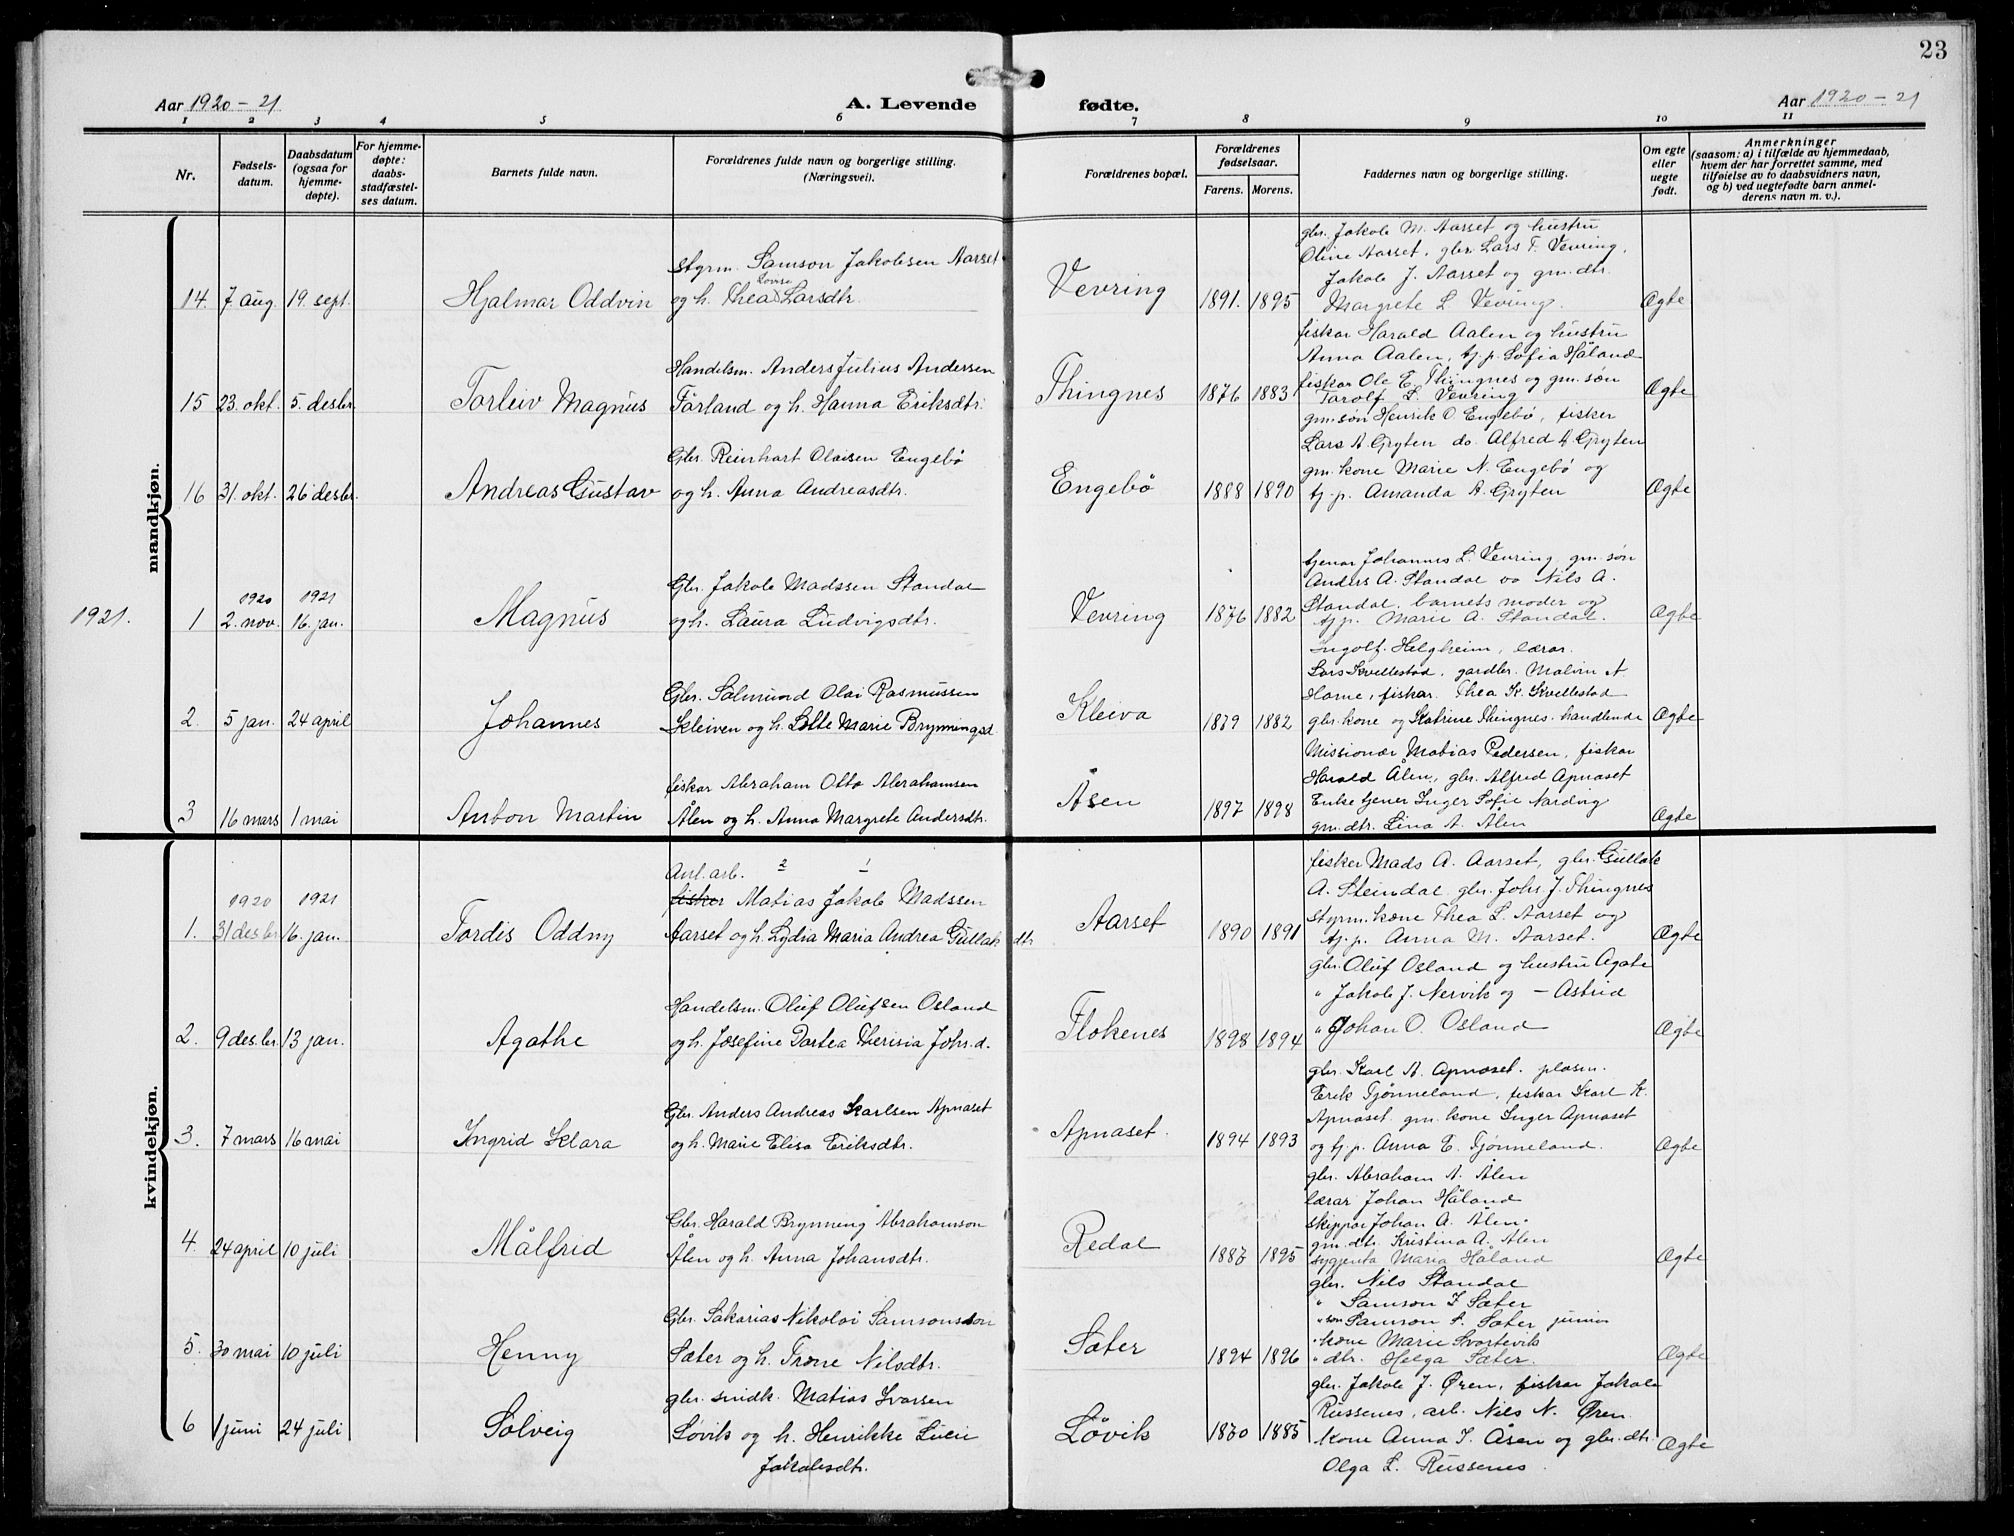 23
Aar 1920-21
A. Levende fødte.
Aar 1920-21
1 2 3 4 5 6 7 8 9 10 11
Nr.
Fødsels-
datum.
Daabsdatum
(ogsaa for
hjemme-
døpte).
For hjemme-
døpte:
daabs-
stadfæstel-
ses datum.
Barnets fulde navn.
Forældrenes fulde navn og borgerlige stilling.
(Næringsvei).
Forældrenes bopæl.
Forældrenes
fødselsaar.
Farens. Morens.
Faddernes navn og borgerlige stilling.
Om egte
eller
uegte
født.
Anmerkninger
(saasom: a) i tilfælde av hjemmedaab,
hvem der har forrettet samme, med
tilføielse av to daabsvidners navn,
og b) ved uegtefødte barn anmel-
derens navn m. v.).
mandkjøn.
14. 7 aug. 19. sept. Hjalmar Oddvin
styrm. Samson Jakobsen Aarset
Lovise
og h. Thea Larsdtr.
Vevring 1891. 1895
gbr. Jakob M. Aarset og hustru
Oline Aarset, gbr. Lars T. Vevring,
Jakob J. Aarset og gm. dtr.
Margrete L. Vevring.
Ægte
15 23. okt. 5. desbr. Torleiv Magnus
Handelsm. Anders Julius Andersen
Förland og h. Hanna Eriksdtr.
Thingnes 1876 1883
fiskar Harald Aalen og hustru
Anna Aalen, tj. p. Sofia Håland
fiskar Ole E. Thingnes og gm. søn
Tarolf L. Vevring
Ægte
16 31. okt. 26 desbr. Andreas Gustav
Gbr. Reinhart Olaisen Engebö
og h. Anna Andreasdtr.
Engebö 1888 1890
gm. søn Henrik O. Engebö, fisker
Lars A. Gryten do. Alfred A. Gryten
gm. kone Marie N. Engebö og
tj. p. Amanda A. Gryten
Ægte
1921.
1920 1921
1 2. nov. 16. jan. Magnus
Gbr. Jakob Madssen Standal
og h. Laura Ludvigsdtr.
Vevring 1876 1882
tjenar Johannes L. Vevring, gm. søn
Anders A. Standal oo Nils A.
Standal, barnets moder og
tj. p. Marie A. Standal.
Ægte
2. 5 jan. 24 april Johannes
Gbr. Salmund Olai Rasmussen
Kleiven og h. Lotte Marie Brynningsd.
Kleiva 1879 1882
Ingolf Helgheim, lærar.
Lars Kvellestad, gardbr. Malvin A.
Horne, fiskar. Thea K. Kvellestad
gbr. kone og Katrine Thingnes. handlende
Ægte
3 16 mars 1 mai Anton Martin
fiskar Abraham Otto Abrahamsen
Ålen og h. Anna Margrete Andersdtr.
Åsen 1897 1898
Missionær Matias Pedersen, fiskar
Harald Ålen, gbr. Alfred Apnaset
Enke tjener Inger Sofie Nordvig
gm. dtr. Lina A. Ålen
Ægte
kvindekjøn.
1920 1921
1. 31 desbr. 16. jan. Tordis Oddny
Anl. arb. 2 1
fisker Matias Jakob Madssen
Aarset og h. Lydia Maria Andrea Gullaks dtr.
Aarset 1890 1891
fisker Mads A. Aarset, gbr. Gullak
A. Steindal gbr. Johs. J. Thingnes
styrm. kone Thea L. Aarset og
tj. p. Anna M. Aarset.
Ægte
2. 9 desbr. 13 jan. Agathe
Handelsm. Oluf Olufsen Osland
og h. Josefine Dortea Therisia Johs. d.
Flokenes 1898 1894
gbr. Oluf Osland og hustru Agate
" Jakob J. Nervik og - Astrid
" Johan O. Osland
Ægte
3. 7 mars 16 mai Ingrid Klara
Gbr. Anders Andreas Karlsen Apnaset
og h. Marie Elisa Eriksdtr.
Apnaset. 1894 1893
gbr. Karl A. Apnaset. plasm.
Erik Tjönneland, fiskar Karl K.
Apnaset gm. kone Inger Apnaset
og tj. p. Anna E. Tjönneland.
Ægte
4. 24 april 10 juli Målfrid
Gbr. Harald Brynning Abrahamson
Ålen og h. Anna Johansdtr.
Redal 1887 1895
gbr. Abraham A. Ålen
lærar Johan Håland
skippar Johan A. Ålen.
gm. dtr. Kristina A. Ålen
sygjenta Maria Håland
Ægte
5. 30 mai 10 juli Henny
Gbr. Sakarias Nikolai Samsonsson
Sæter og h. Trone Nilsdtr.
Sæter 1894 1896
gbr. Nils Standal
" Samson I. Sæter
" son Samson S. Sæter junior
" kone Marie Svortevik
" dtr. Helga Sæter.
Ægte
6 1 juni 24 juli Solveig
gbr. snidk. Matias Ivarsen
Løvik og h. Henrikke Lucie
Jakobsdtr.
Løvik 1870 1885
gbr. Jakob J. Øren, fiskar Jakob
Russenes, arb. Nils N. Øren.
kone Anna I. Åsen og gbr. dtr.
Olga L. Russenes.
Ægte